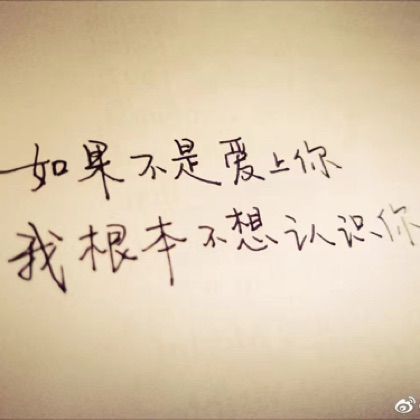 如果不是爱上你
我根本不想认识你